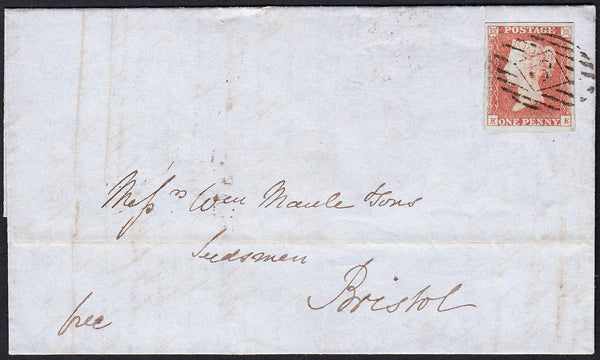 POSTAGE
K K
ONE PENNY
Messrs Wm Maule & Sons
Seedsmen
Bristol
free